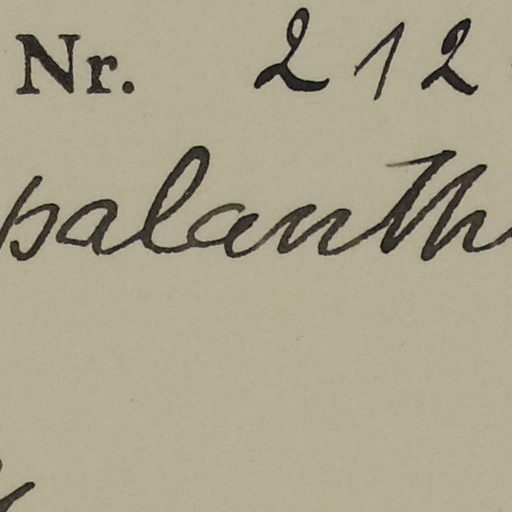 Nr. 212
palanth